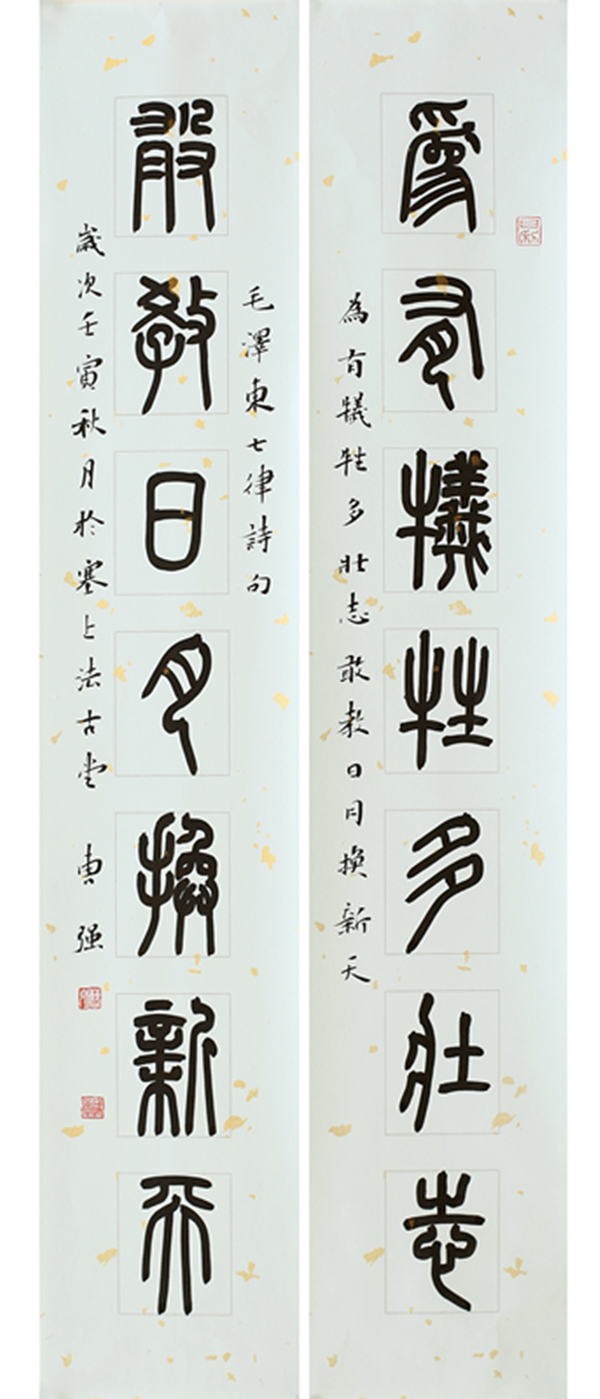 為有犧牲多壯志
為有犧牲多壯志敢教日月換新天
毛澤東七律詩句
敢教日月換新天
歲次壬寅秋月於塞上法古堂 曹强